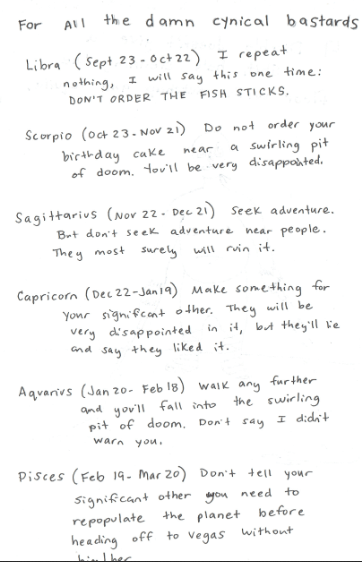 For All the damn cynical bastards
Libra (Sept 23 - Oct 22) I repeat
nothing, I will say this one time:
DON'T ORDER THE FISH STICKS.
Scorpio (Oct 23 - Nov 21) Do not order your
birthday cake near a swirling pit
of doom. You'll be very disappointed.
Sagittarius (Nov 22 - Dec 21) Seek adventure.
But don't seek adventure near people.
They most surely will ruin it.
Capricorn (Dec 22 - Jan 19) Make something for
your significant other. They will be
very disappointed in it, but they'll lie
and say they liked it.
Aquarius (Jan 20 - Feb 18) Walk any further
and you'll fall into the swirling
pit of doom. Don't say I didn't
warn you.
Pisces (Feb 19 - Mar 20) Don't tell your
significant other you need to
repopulate the planet before
heading off to Vegas without
him/her